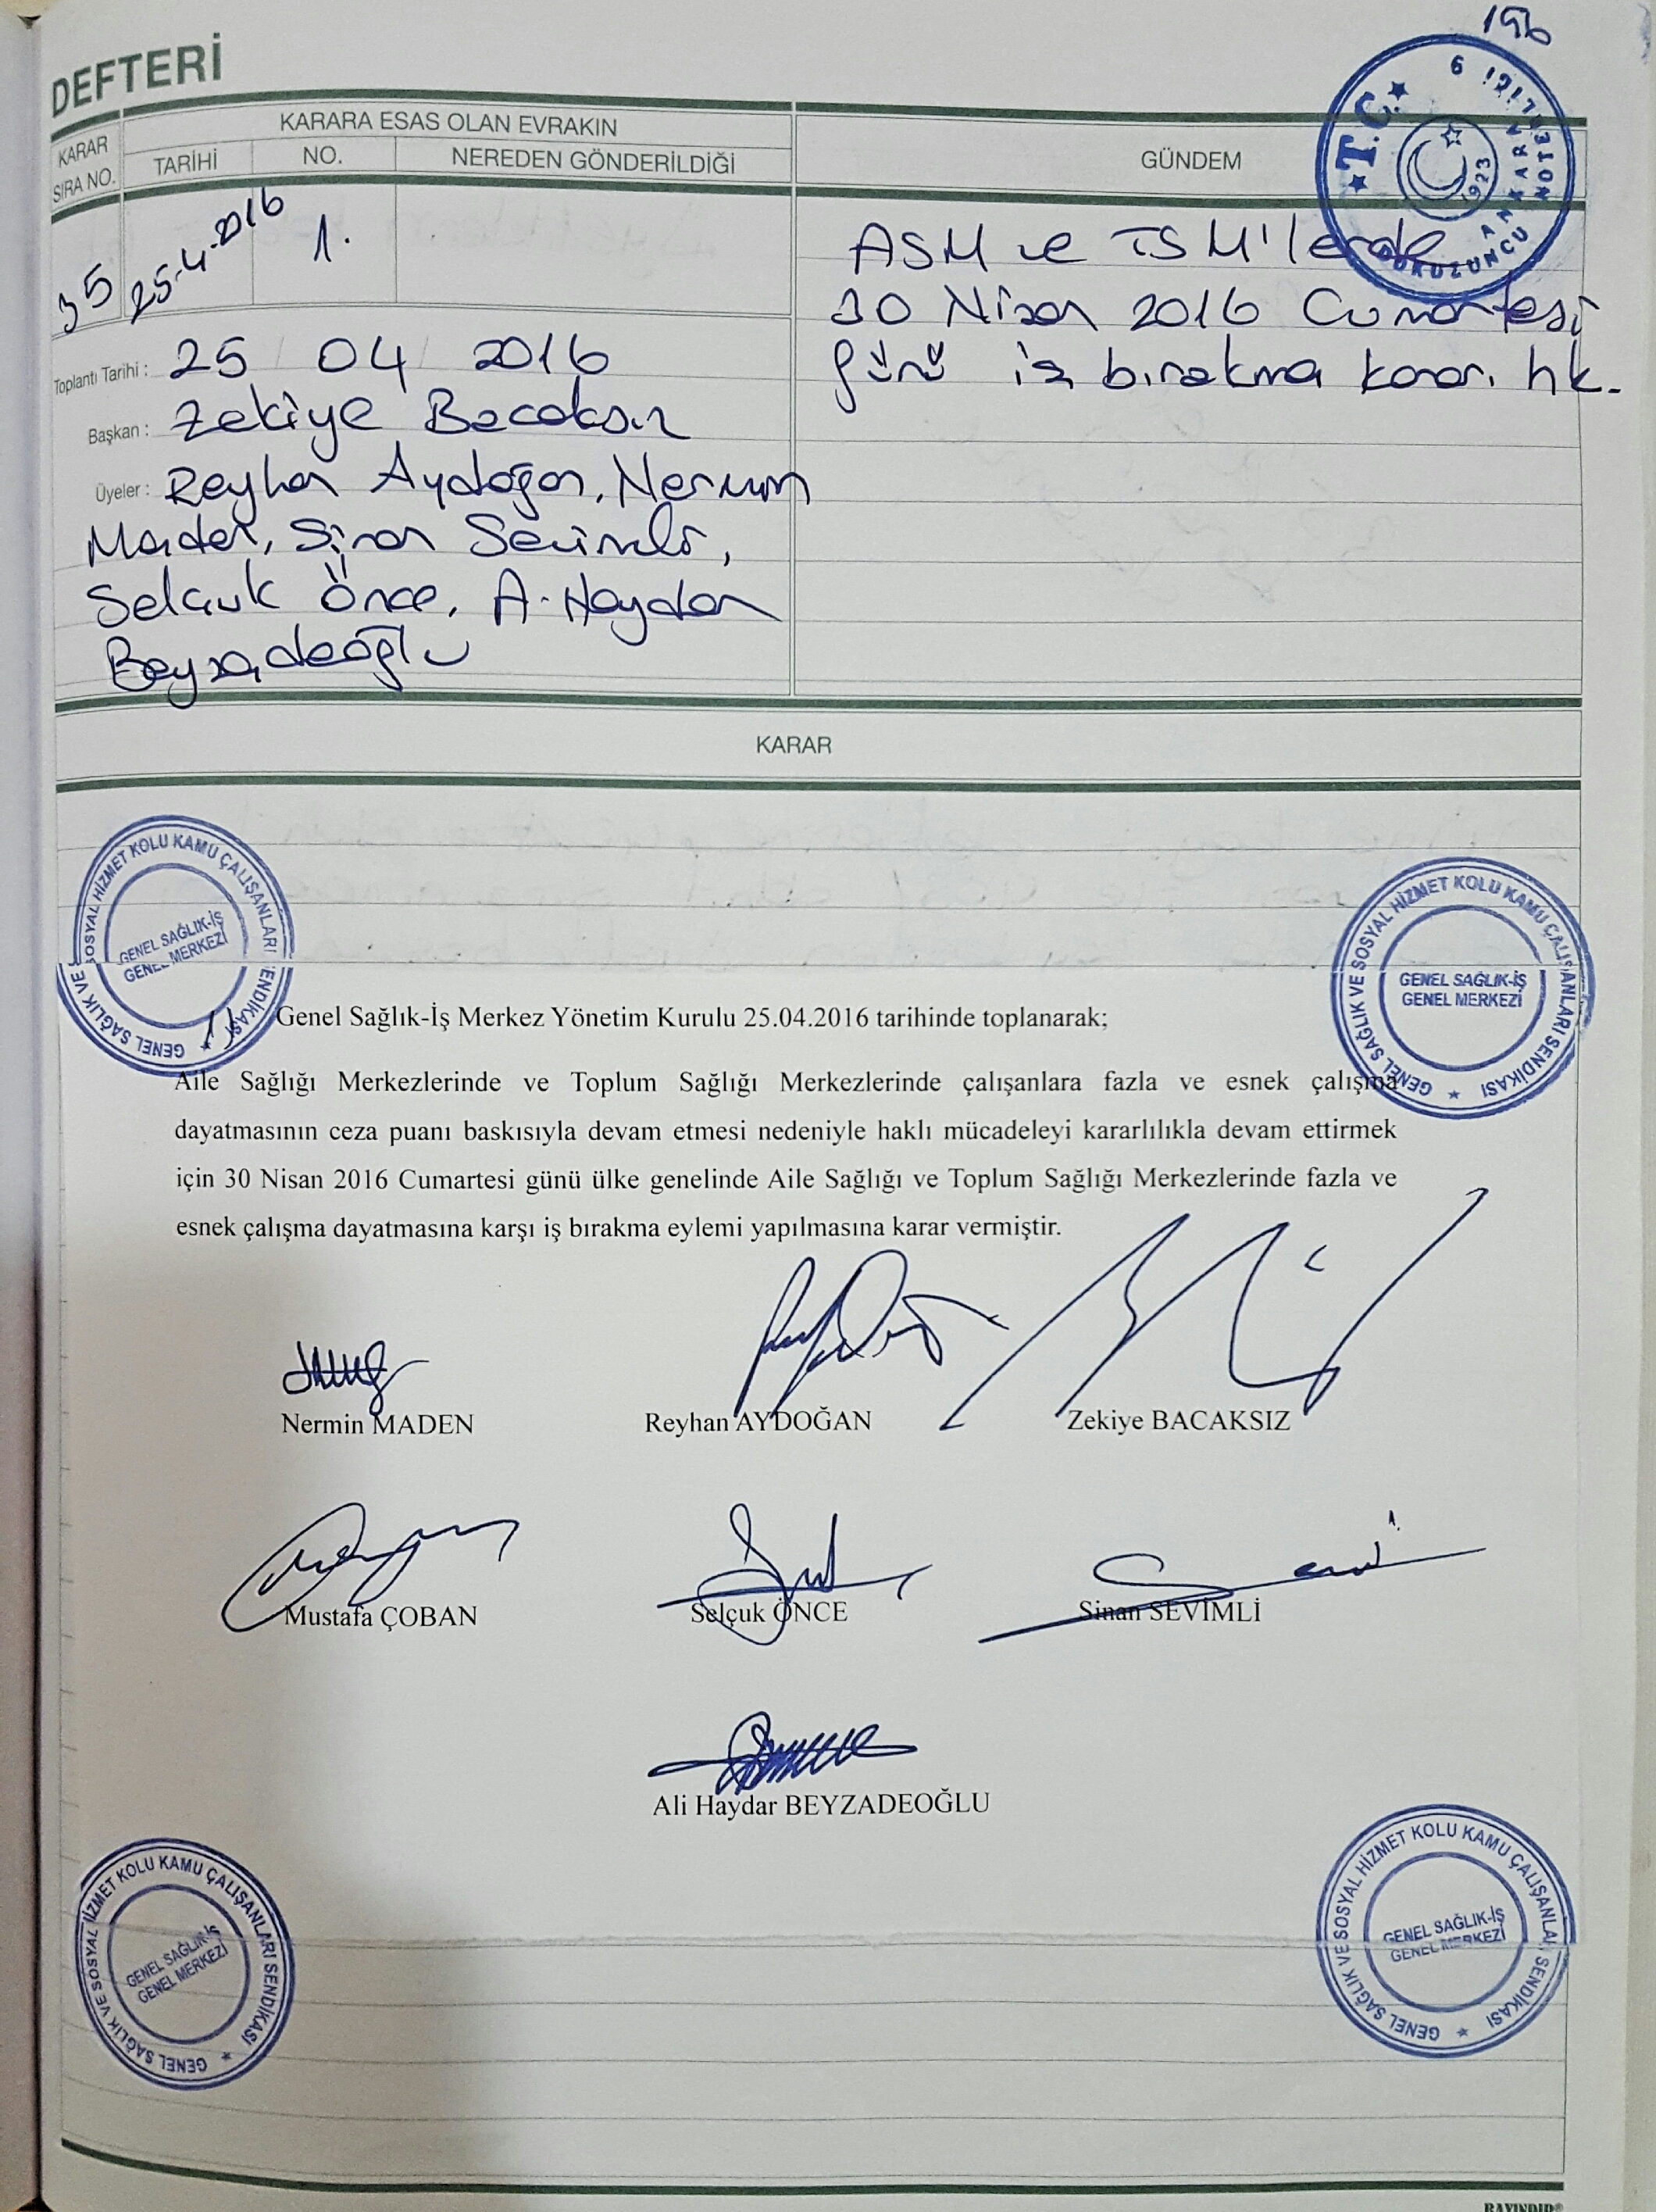 196
DEFTERİ
KARAR
SIRA NO.
KARARA ESAS OLAN EVRAKIN
TARİHİ
NO.
NEREDEN GÖNDERİLDİĞİ
GÜNDEM
★ T.C. ★
ANKARA
DOKUZUNCU NOTERLİĞİ 9
1923
35
25-4-2016
1.
ASM ve TSM'lerde
30 Nisan 2016 Cumartesi
günü iş bırakma kararı hk.
Toplantı Tarihi : 25 04 2016
Başkan : Zekiye Bacaksız
Üyeler : Reyhan Aydoğan, Nermin
Maden, Sinan Sevimli,
Selçuk Önce, A. Haydar
Beyzadeoğlu
KARAR
GENEL SAĞLIK VE SOSYAL HİZMET KOLU KAMU ÇALIŞANLARI SENDİKASI ★
GENEL SAĞLIK-İŞ
GENEL MERKEZİ
GENEL SAĞLIK VE SOSYAL HİZMET KOLU KAMU ÇALIŞANLARI SENDİKASI ★
GENEL SAĞLIK-İŞ
GENEL MERKEZİ
1) Genel Sağlık-İş Merkez Yönetim Kurulu 25.04.2016 tarihinde toplanarak;
Aile Sağlığı Merkezlerinde ve Toplum Sağlığı Merkezlerinde çalışanlara fazla ve esnek çalışma
dayatmasının ceza puanı baskısıyla devam etmesi nedeniyle haklı mücadeleyi kararlılıkla devam ettirmek
için 30 Nisan 2016 Cumartesi günü ülke genelinde Aile Sağlığı ve Toplum Sağlığı Merkezlerinde fazla ve
esnek çalışma dayatmasına karşı iş bırakma eylemi yapılmasına karar vermiştir.
Nermin MADEN
Reyhan AYDOĞAN
Zekiye BACAKSIZ
Mustafa ÇOBAN
Selçuk ÖNCE
Sinan SEVİMLİ
Ali Haydar BEYZADEOĞLU
GENEL SAĞLIK VE SOSYAL HİZMET KOLU KAMU ÇALIŞANLARI SENDİKASI ★
GENEL SAĞLIK-İŞ
GENEL MERKEZİ
GENEL SAĞLIK VE SOSYAL HİZMET KOLU KAMU ÇALIŞANLARI SENDİKASI ★
GENEL SAĞLIK-İŞ
GENEL MERKEZİ
BAYINDIR®